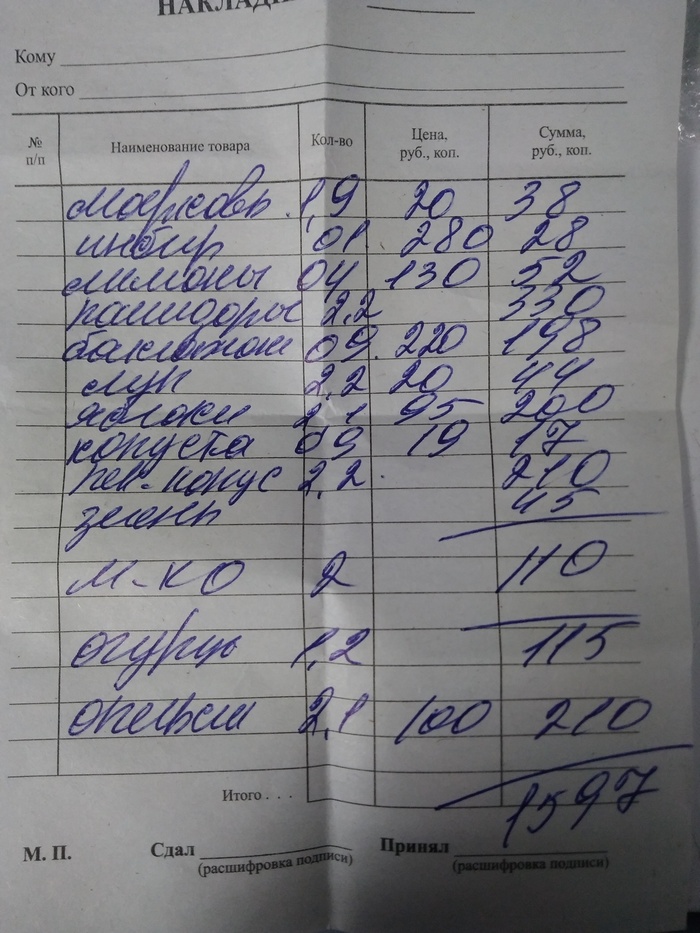 НАКЛАДН
Кому
От кого
№ п/п Наименование товара Кол-во Цена, руб., коп. Сумма, руб., коп.
морковь 1,9 20 38
инбир 01 280 28
лимоны 04 130 52
памидоры 2,2 330
баклажан 09 220 198
лук 2,2 20 44
яблоки 2,1 95 200
копуста 09 19 17
пек-копус 2,2 210
зелень 45
м-ко 2 110
огурцы 1,2 115
опельси 2,1 100 210
Итого . . . 1597
М. П. Сдал Принял
(расшифровка подписи) (расшифровка подписи)